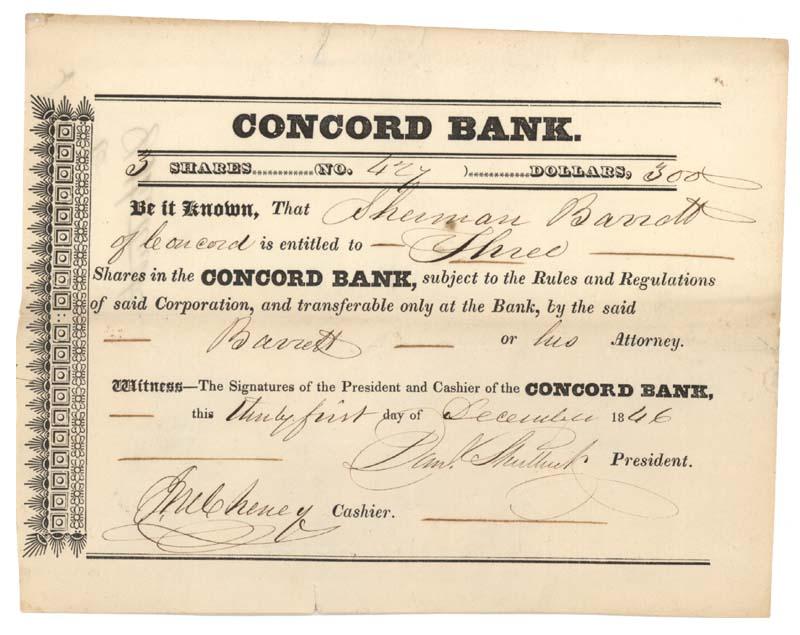 CONCORD BANK.
3 SHARES............(NO. 427 )............DOLLARS, 300
Be it Known, That Sherman Barrett
of Concord is entitled to — Three —
Shares in the CONCORD BANK, subject to the Rules and Regulations
of said Corporation, and transferable only at the Bank, by the said
— Barrett — or his Attorney.
Witness—The Signatures of the President and Cashier of the CONCORD BANK,
— this thirty first day of December 1846
Danl. Shattuck President.
J. M. Cheney Cashier.